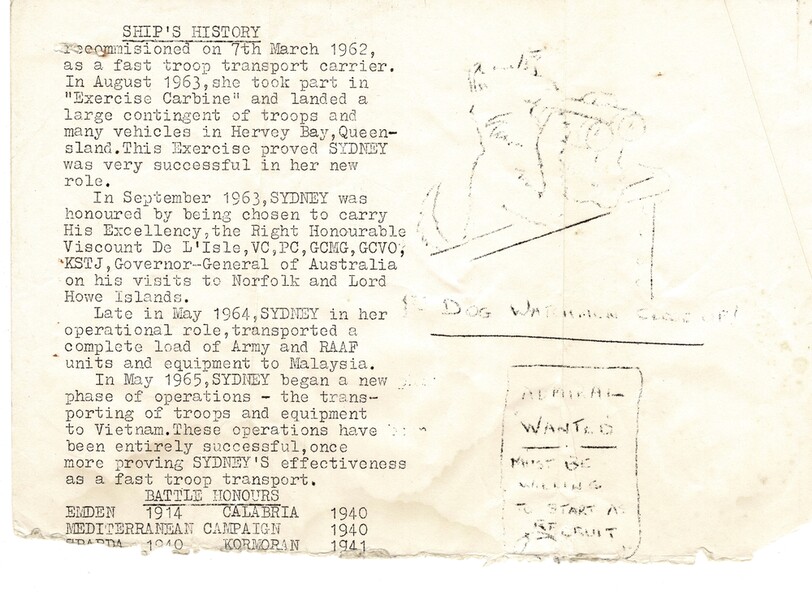 SHIP'S HISTORY
recommisioned on 7th March 1962,
as a fast troop transport carrier.
In August 1963,she took part in
"Exercise Carbine" and landed a
large contingent of troops and
many vehicles in Hervey Bay,Queen-
sland.This Exercise proved SYDNEY
was very successful in her new
role.
In September 1963,SYDNEY was
honoured by being chosen to carry
His Excellency,the Right Honourable
Viscount De L'Isle,VC,PC,GCMG,GCVO,
KSTJ,Governor-General of Australia
on his visits to Norfolk and Lord
Howe Islands.
Late in May 1964,SYDNEY in her
operational role,transported a
complete load of Army and RAAF
units and equipment to Malaysia.
In May 1965,SYDNEY began a new
phase of operations - the trans-
porting of troops and equipment
to Vietnam.These operations have
been entirely successful,once
more proving SYDNEY'S effectiveness
as a fast troop transport.
BATTLE HONOURS
EMDEN 1914 CALABRIA 1940
MEDITERRANEAN CAMPAIGN 1940
SPARDA 1940 KORMORAN 1941
DOG WATCHMEN
ADMIRAL
WANTED
MUST BE
WILLING
TO START AS
RECRUIT